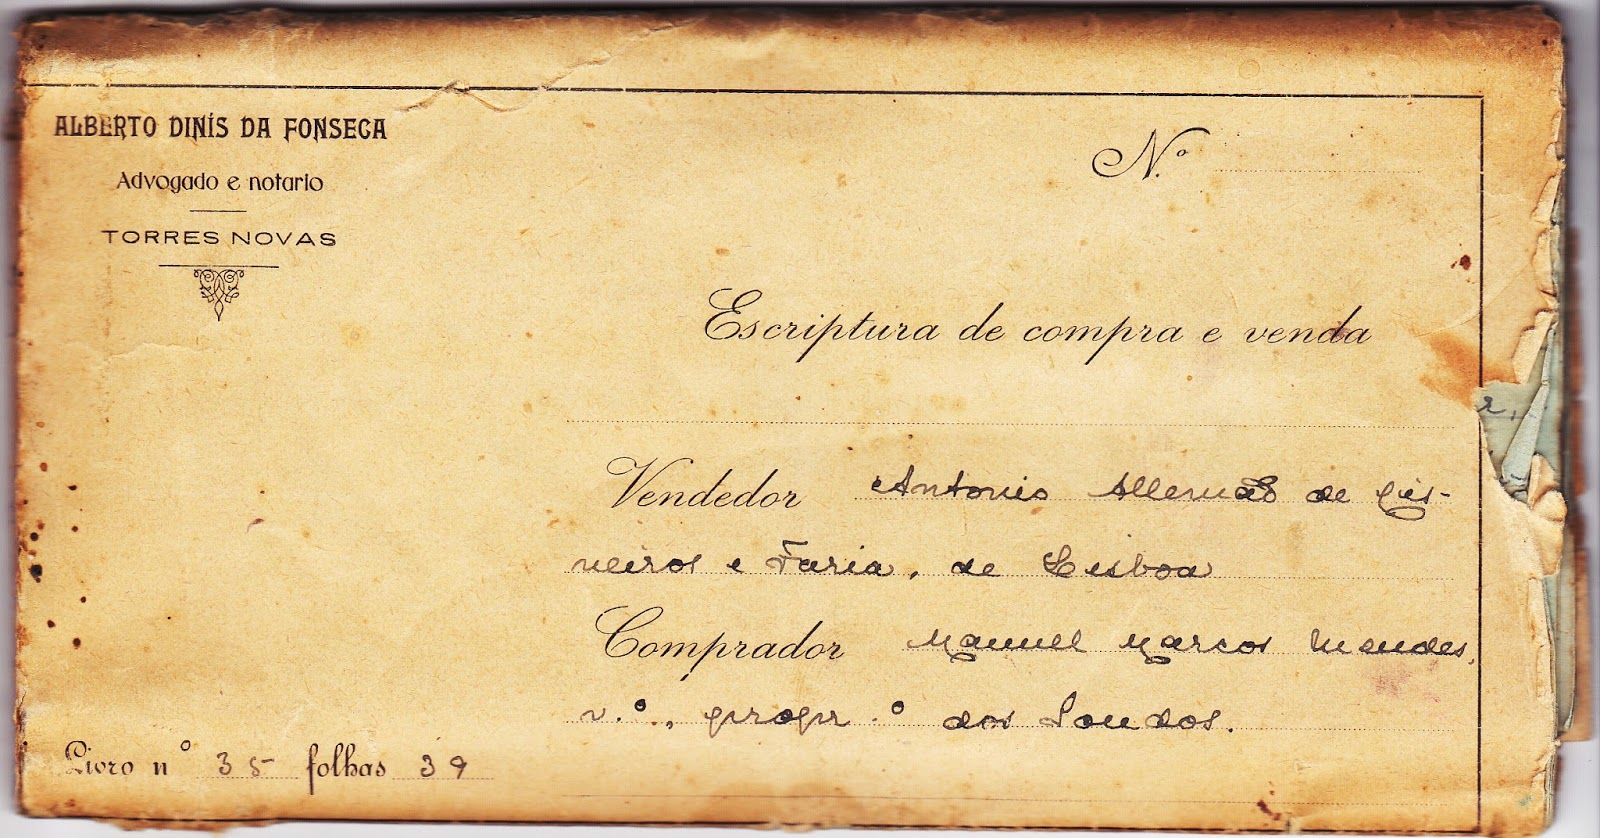 ALBERTO DINÍS DA FONSECA
Advogado e notario
TORRES NOVAS
N.º
Escriptura de compra e venda
Vendedor Antonio Allemão de Cis-
neiros e Faria, de Lisboa
Comprador Manuel Marcos Mendes,
v.º, propr.º dos Soudos.
Livro nº 35 folhas 39